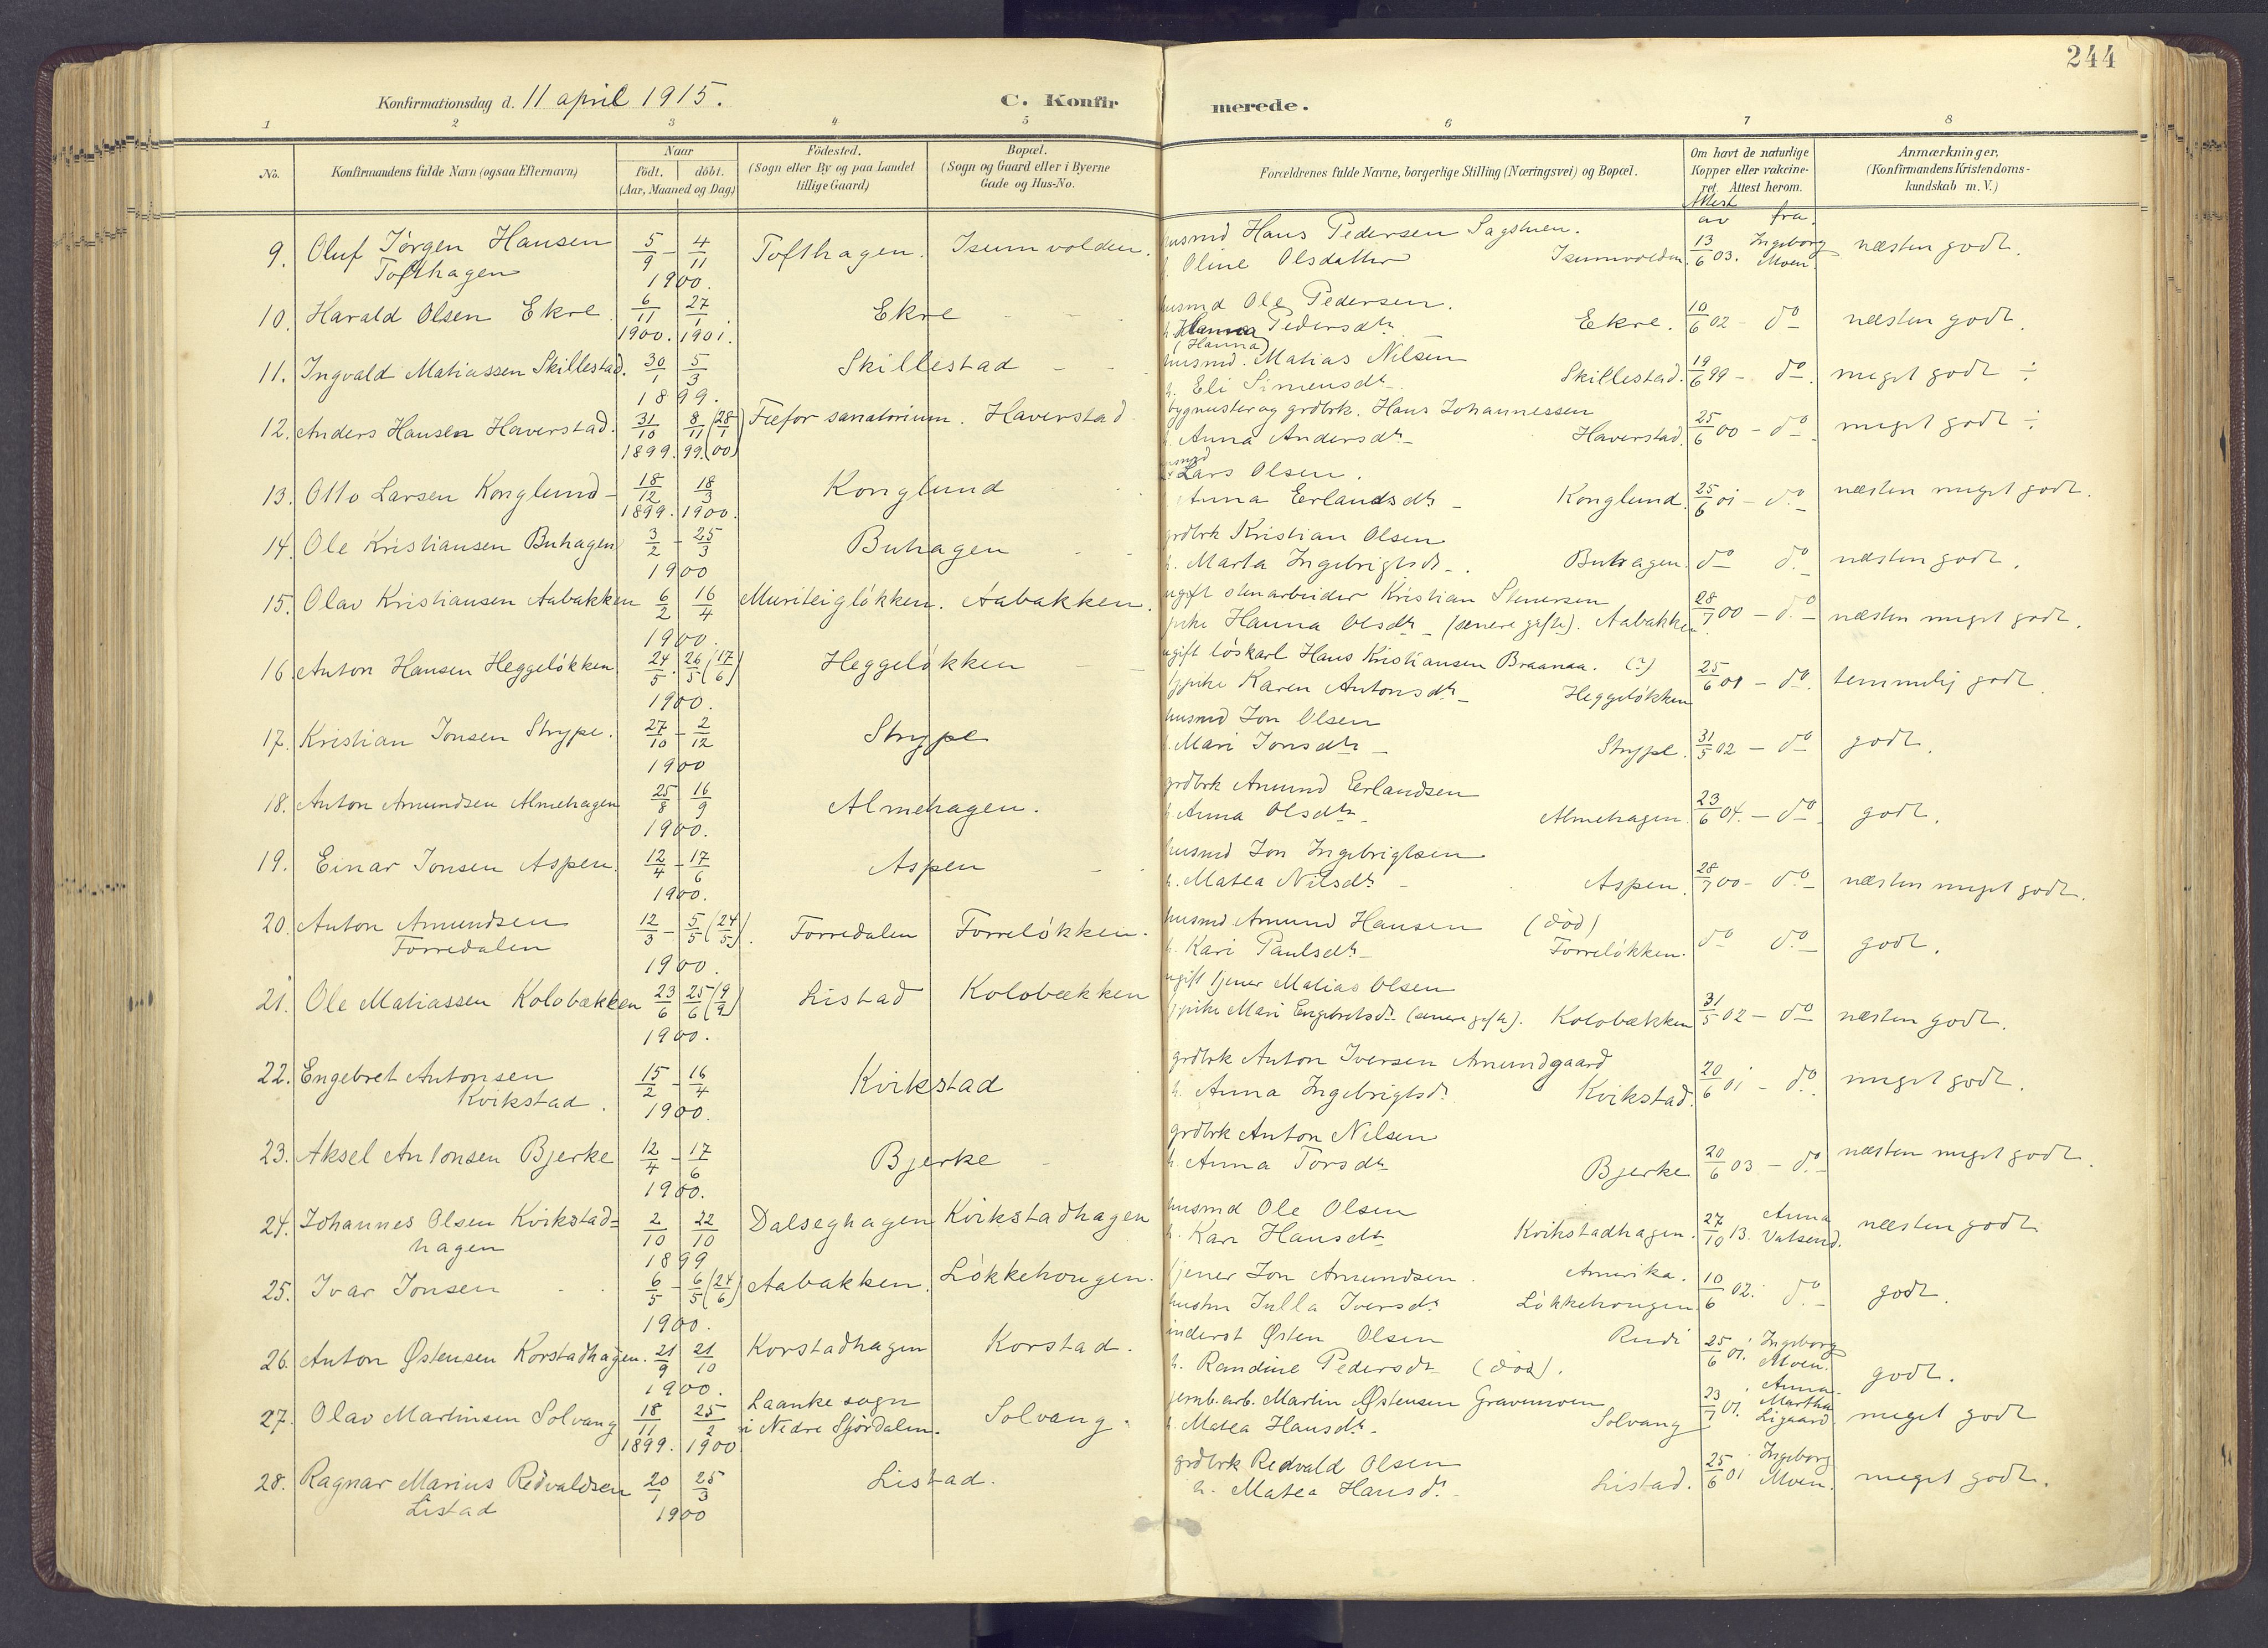 244
Konfirmationsdag d. 11 april 1915.
C. Konfirmerede.
1 2 3 4 5 6 7 8
No.
Konfirmandens fulde Navn (ogsaa Efternavn)
Naar
födt. döbt.
(Aar, Maaned og Dag)
Födested.
(Sogn eller By og paa Landet
tillige Gaard)
Bopæl.
(Sogn og Gaard eller i Byerne
Gade og Hus-No.
Forældrenes fulde Navne, borgerlige Stilling (Næringsvei) og Bopæl.
Om havt de naturlige
Kopper eller vakcine-
ret. Attest herom.
Anmærkninger.
(Konfirmandens Kristendoms-
kundskab m. V.)
Attest
av fra
9. Oluf Jörgen Hansen Tofthagen 5/9 - 4/11 1900. Tofthagen. Isumvolden. husmd Hans Pedersen Sagstuen.
h. Oline Olsdatter Isumvolden. 13/6 03. Ingeborg Moen næsten godt.
10. Harald Olsen Ekre. 6/11 1900. 27/1 1901. Ekre husmd Ole Pedersen.
h. Pedersdtr (Hanna) Ekre. 10/6 02 - do næsten godt.
11. Ingvald Matiassen Skillestad. 30/1 5/3 1899. Skillestad husmd. Matias Nilsen
h. Eli Simensdtr Skillestad. 19/6 99 - do. meget godt ÷
12. Anders Hansen Haverstad. 31/10 1899. 8/11 99. (28/1 00) Fefor sanatorium. Haverstad bygmester og grdbrk. Hans Johannessen
h. Anna Andersdtr Haverstad. 25/6 00 - do meget godt ÷
13. Otto Larsen Konglund 18/12 1899. 18/3 1900. Konglund husmd Lars Olsen.
Anna Erlandsdtr Konglund. 25/6 01 - do næsten meget godt.
14. Ole Kristiansen Buhagen 3/2 - 25/3 1900 Buhagen grdbrk Kristian Olsen
h. Marta Ingebrigtsdtr. Buhagen. do do næsten godt.
15. Olav Kristiansen Aabakken 6/2 16/4 1900. Muriteigløkken. Aabakken. ugift stenarbeider Kristian Stenersen
pike Hanna Olsdtr (senere gifte). Aabakken 28/7 00 - do næsten meget godt.
16. Anton Hansen Heggeløkken 24/5 26/5 (17/6) 1900. Heggeløkken ugift løskarl Hans Kristiansen Braanaa. (?)
tj pike Karen Antonsdtr Heggeløkken 25/6 01 - do temmelig godt
17. Kristian Jonsen Strype. 27/10 - 2/12 1900 Strype husmd Jon Olsen
h. Mari Jonsdtr Strype. 31/5 02 - do godt.
18. Anton Amundsen Almehagen 25/8 16/9 1900. Almehagen. grdbrk Amund Erlandsen
h. Anna Olsdtr Almehagen. 23/6 04. - do godt.
19. Einar Jonsen Aspen. 12/4 - 17/6 1900. Aspen husmd Jon Ingebrigtsen
h. Matea Nilsdtr Aspen. 28/7 00 - do næsten meget godt.
20. Anton Amundsen Forredalen 12/3 - 5/5 (24/5). 1900. Forredalen Forreløkken. husmd Amund Hansen (död)
h. Kari Paulsdtr Forreløkken. do do godt.
21. Ole Matiassen Kolobækken 23/6 25/6 (9/9) 1900. Listad Kolobækken ugift tjener Matias Olsen
tj pike Mari Engebretsdtr (senere gifte). Kolobækken 31/5 02 - do næsten godt.
22. Engebret Antonsen Kvikstad. 15/2 - 16/4 1900. Kvikstad grdbrk Anton Iversen Amundgaard
h. Anna Ingebrigtsd. Kvikstad. 20/6 01 - do meget godt.
23. Aksel Antonsen Bjerke 12/4 - 17/6 1900. Bjerke grdbrk Anton Nilsen
h. Anna Torsdtr Bjerke 20/6 03 - do næsten meget godt.
24. Johannes Olsen Kvikstad=hagen 2/10 22/10 1899 Dalseghagen Kvikstadhagen husmd Ole Olsen
h. Kari Hansdtr Kvikstadhagen. 27/10 13. Anna Vatsend. næsten godt
25. Ivar Jonsen 6/5 - 6/5 (24/6) 1900. Aabakken. Løkkehougen. tjener Jon Amundsen Amerika.
Julla Iversdtr Løkkehougen 10/6 02. do godt.
26. Anton Østensen Korstadhagen. 21/9 21/10 1900. Korstadhagen Korstad. inderst Østen Olsen Rudi
h. Randine Pedersdtr (död). 25/6 01. Ingeborg Moen. godt.
27. Olav Martinsen Solvang 18/11 1899. 25/2 1900 Laanke sogn i Nedre Stjørdalen. Solvang. jernb.arb. Martin Østensen Gravenmoen
h. Matea Hansdtr. Solvang 23/7 01. Anna Martha Ligaard. meget godt
28. Ragnar Marius Redvaldsen Listad 20/1 25/3 1900 Listad. grdbrk Redvald Olsen
h. Matea Hansd. Listad. 25/6 01 Ingeborg Moen. meget godt.